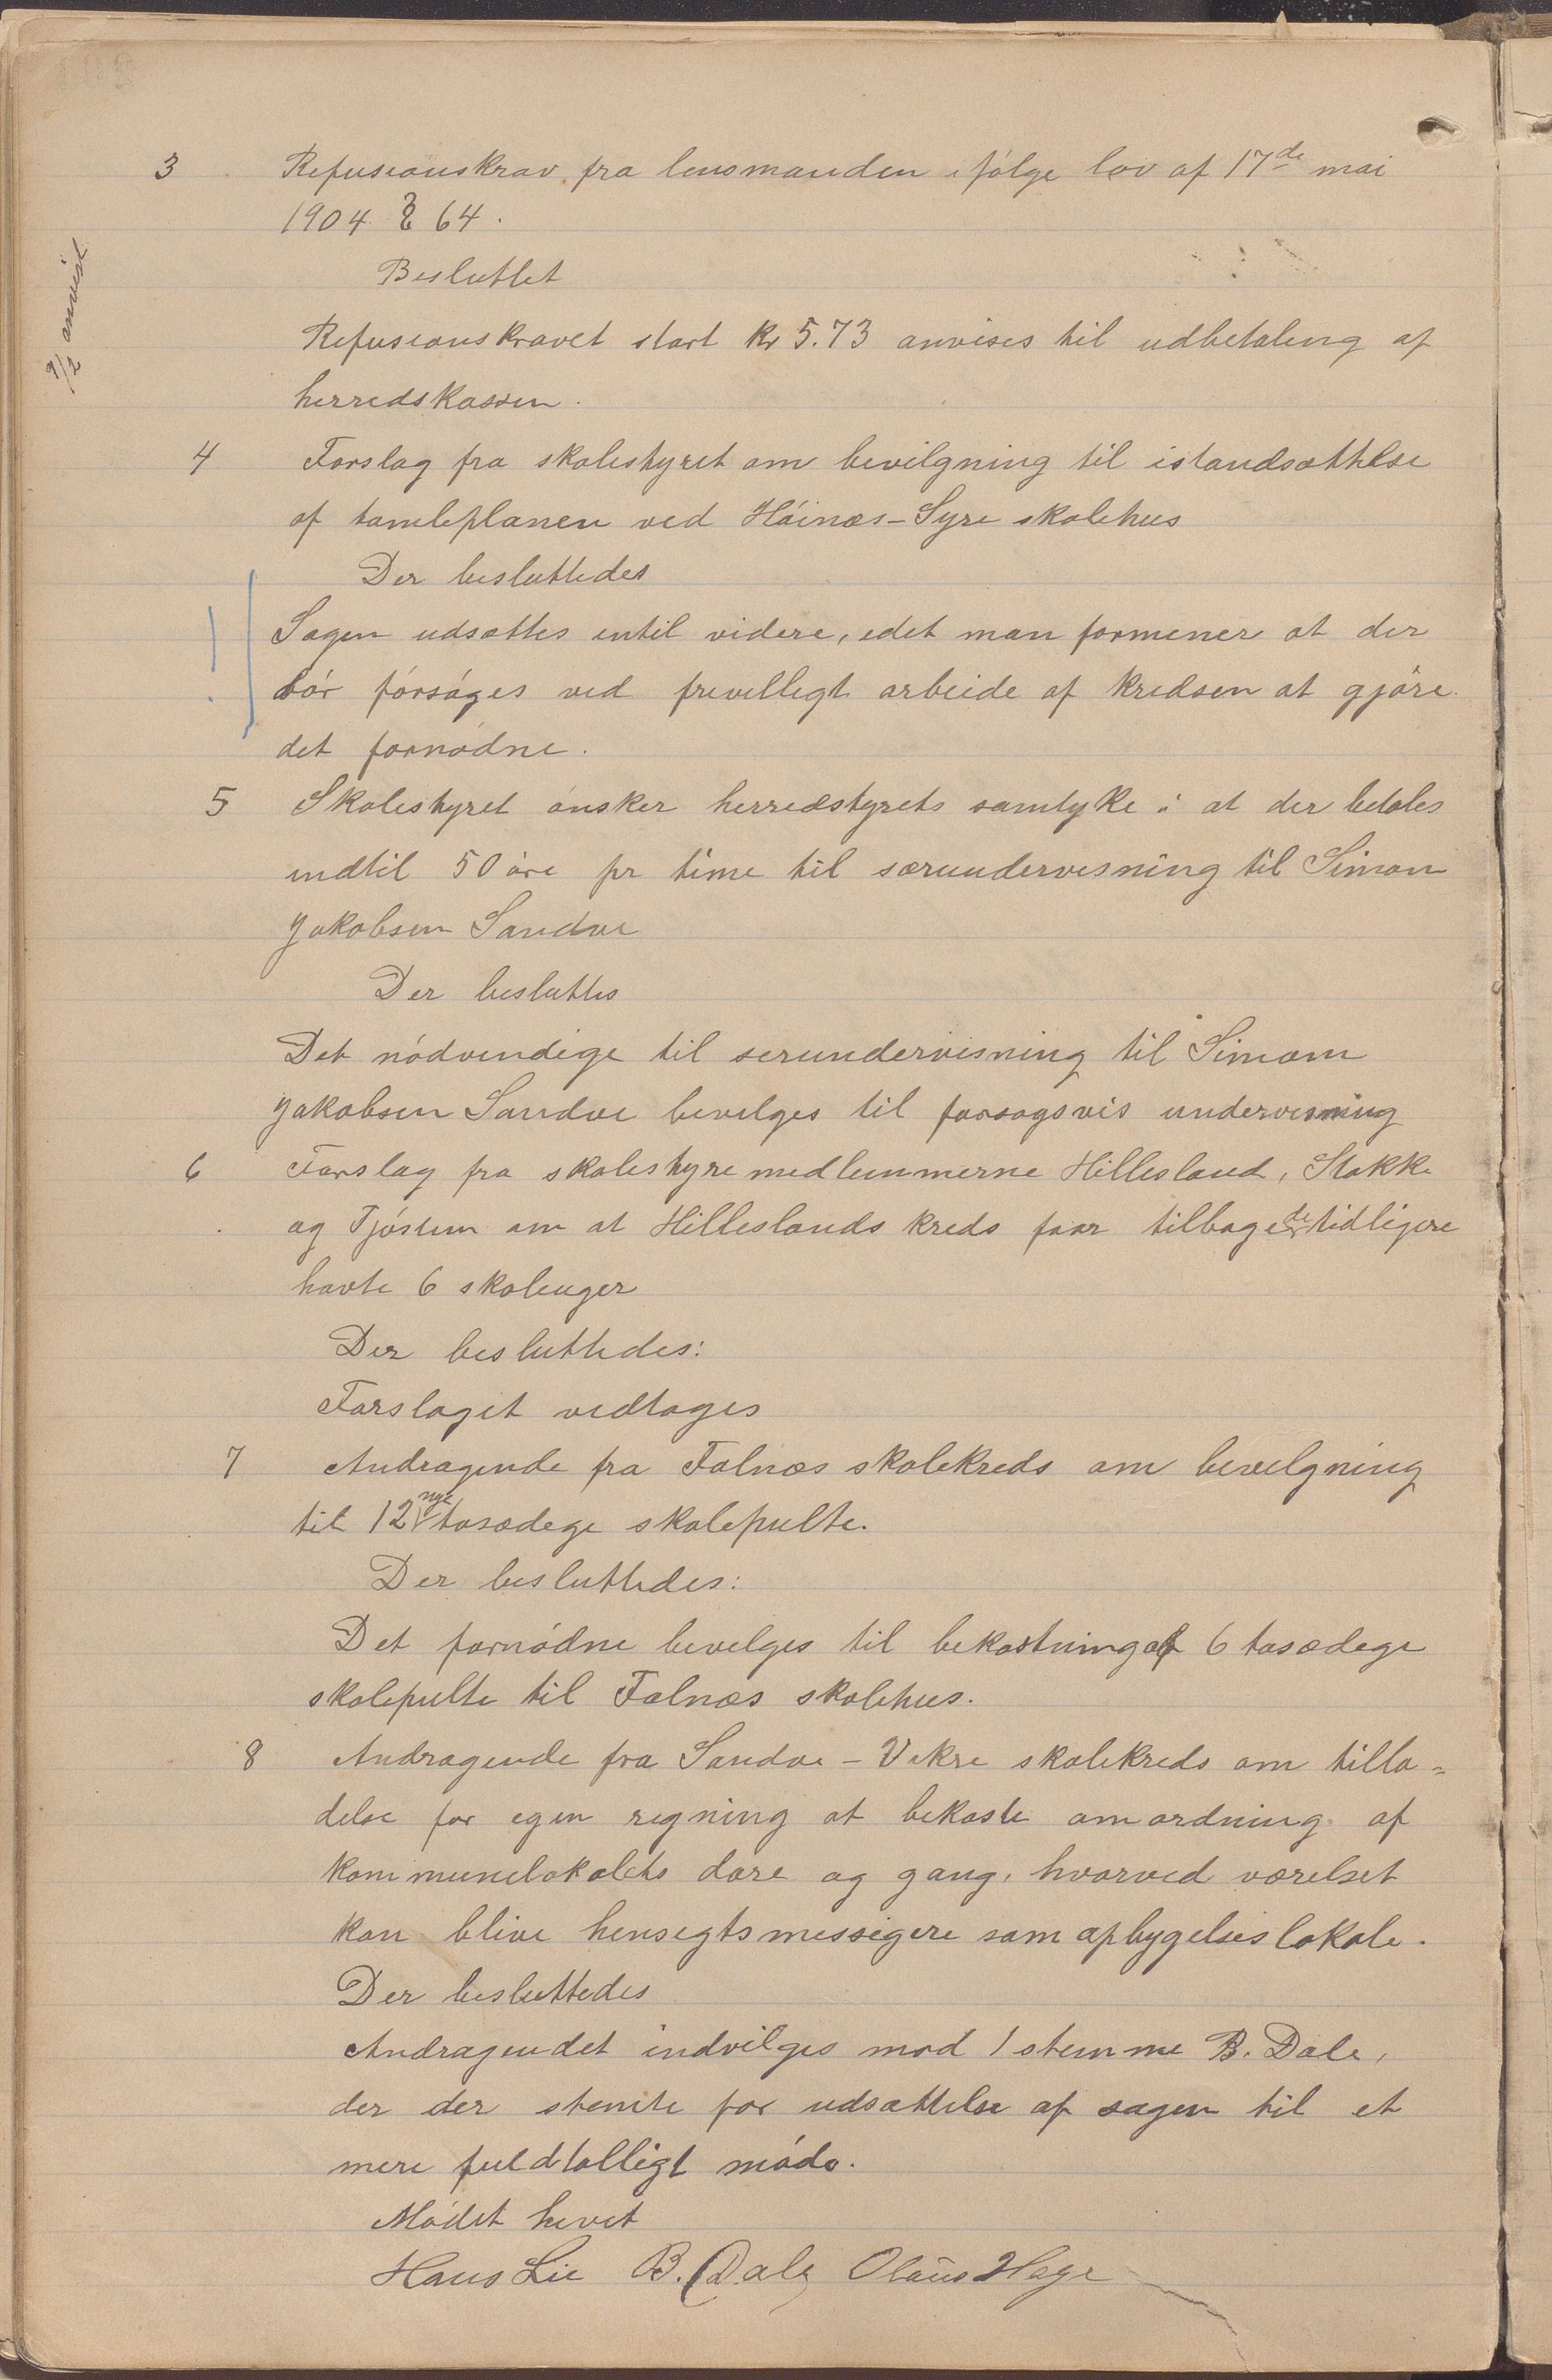 3 Refusionskrav fra lensmanden ifølge lov af 17de mai
1904 § 64.
Besluttet
2/2 anvist
Refusionskravet stort kr 5.73 anvises til udbetaling af
herredskassen.
4 Forslag fra skolestyret om bevilgning til istandsættelse
af tomteplanen ved Høinæs-Syre skolehus
Der besluttedes
Sagen udsættes intil videre, idet man formener at der
bør førsøges ved frivilligt arbeide af kredsen at gjøre
det fornødne.
5 Skolestyret ønsker herredstyrets samtyke i at der betales
indtil 50 øre pr time til særundervisning til Simon
Jakobsen Sandve
Der besluttes
Det nødvendige til serundervisning til Simom
Jakobsen Sandve bevilges til forsøgsvis undervisning
6 Forslag fra skolestyremedlemmerne Hillesland, Stokke
og Tjøstem om at Hilleslands kreds faar tilbage de tidligere
havte 6 skoleuger
Der besluttedes:
Forslaget vedtages
7 Andragende fra Falnæs skolekreds om bevilgning
til 12 nye tosædege skolepulte.
Der besluttedes:
Det fornødne bevilges til bekostning af 6 tosædege
skolepulte til Falnæs skolehus.
8 Andragende fra Sandve - Vikre skolekreds om tilla-
delse for egen regning at bekoste omordning af
kommunelokalets døre og gang, hvorved værelset
kan blive hensegtsmessigere som opbygelseslokale.
Der besluttedes
Andragendet indvilges mod 1 stemme B. Dale,
der der stemte for udsættelse af sagen til et
mere fuldtalligt møde.
Mødet hevet
Hans Lie B. Dale Olaus Hage